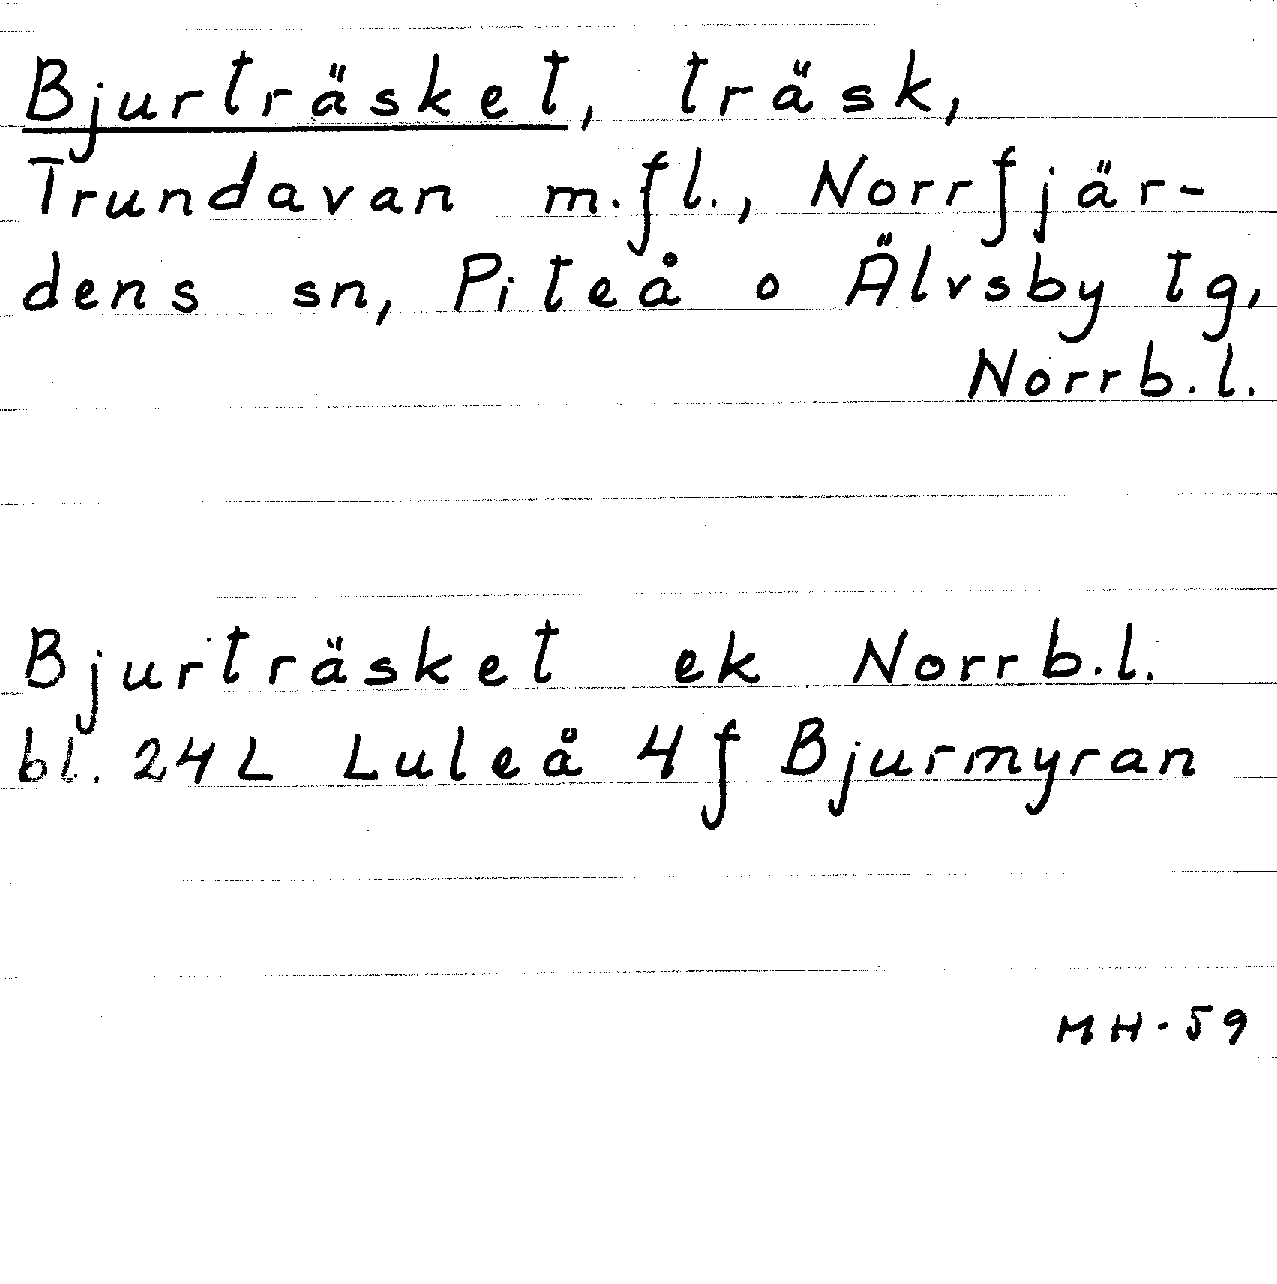 Bjurträsket, träsk,
Trundavan m.fl., Norrfjär-
dens sn, Piteå o Älvsby tg,
Norrb.l.
Bjurträsket ek Norrb.l.
bl. 24L Luleå 4f Bjurmyran
MH-59